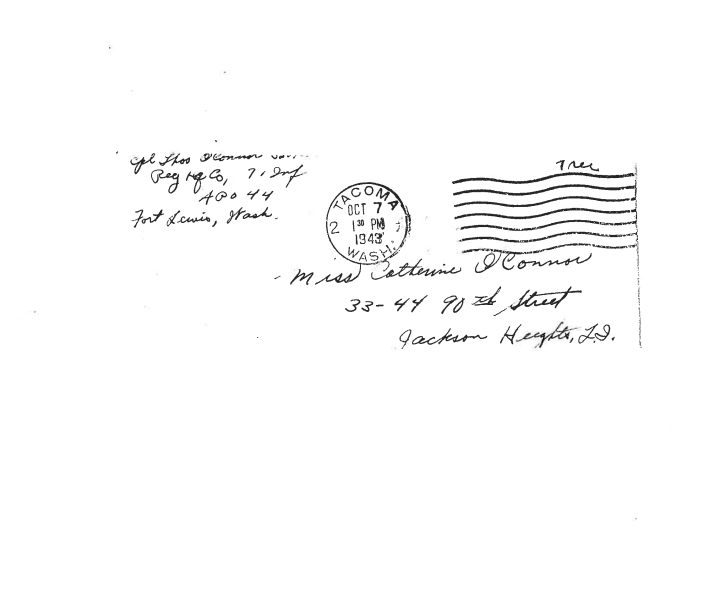 Cpl Thos O'Connor
Reg Hq Co, 71 Inf
APO 44
Fort Lewis, Wash.
Free
TACOMA
OCT 7
1 30 PM
1943
WASH.
Miss Catherine O'Connor
33-44 90th Street
Jackson Heights, L.I.